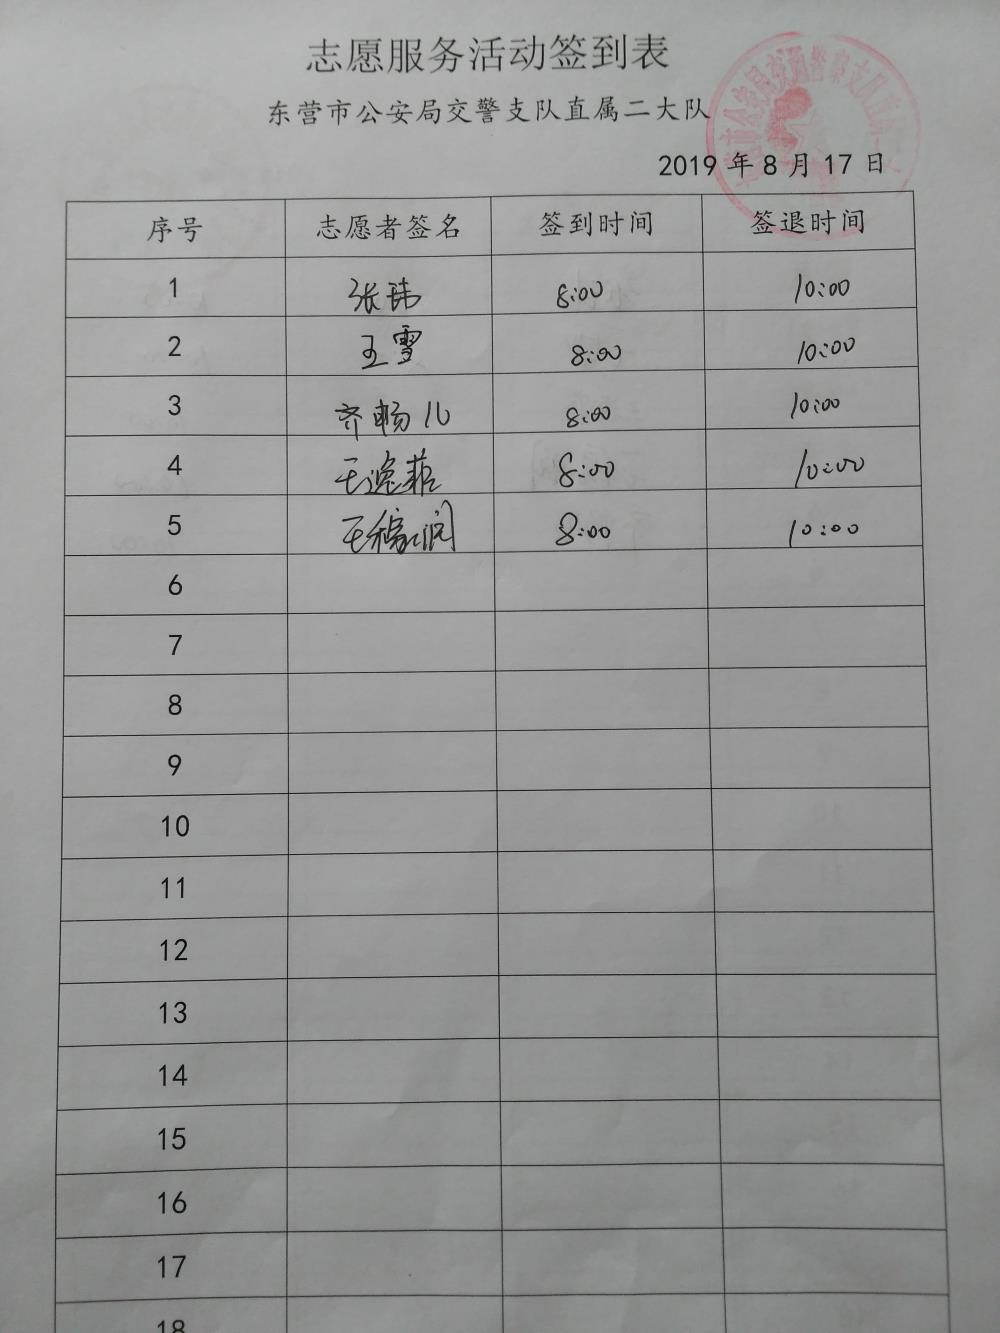 志愿服务活动签到表
东营市公安局交警支队直属二大队
2019 年 8 月 17 日
序号 志愿者签名 签到时间 签退时间
1 张玮 8:00 10:00
2 王雪 8:00 10:00
3 齐畅儿 8:00 10:00
4 王逸菲 8:00 10:00
5 王稼润 8:00 10:00
6
7
8
9
10
11
12
13
14
15
16
17
18